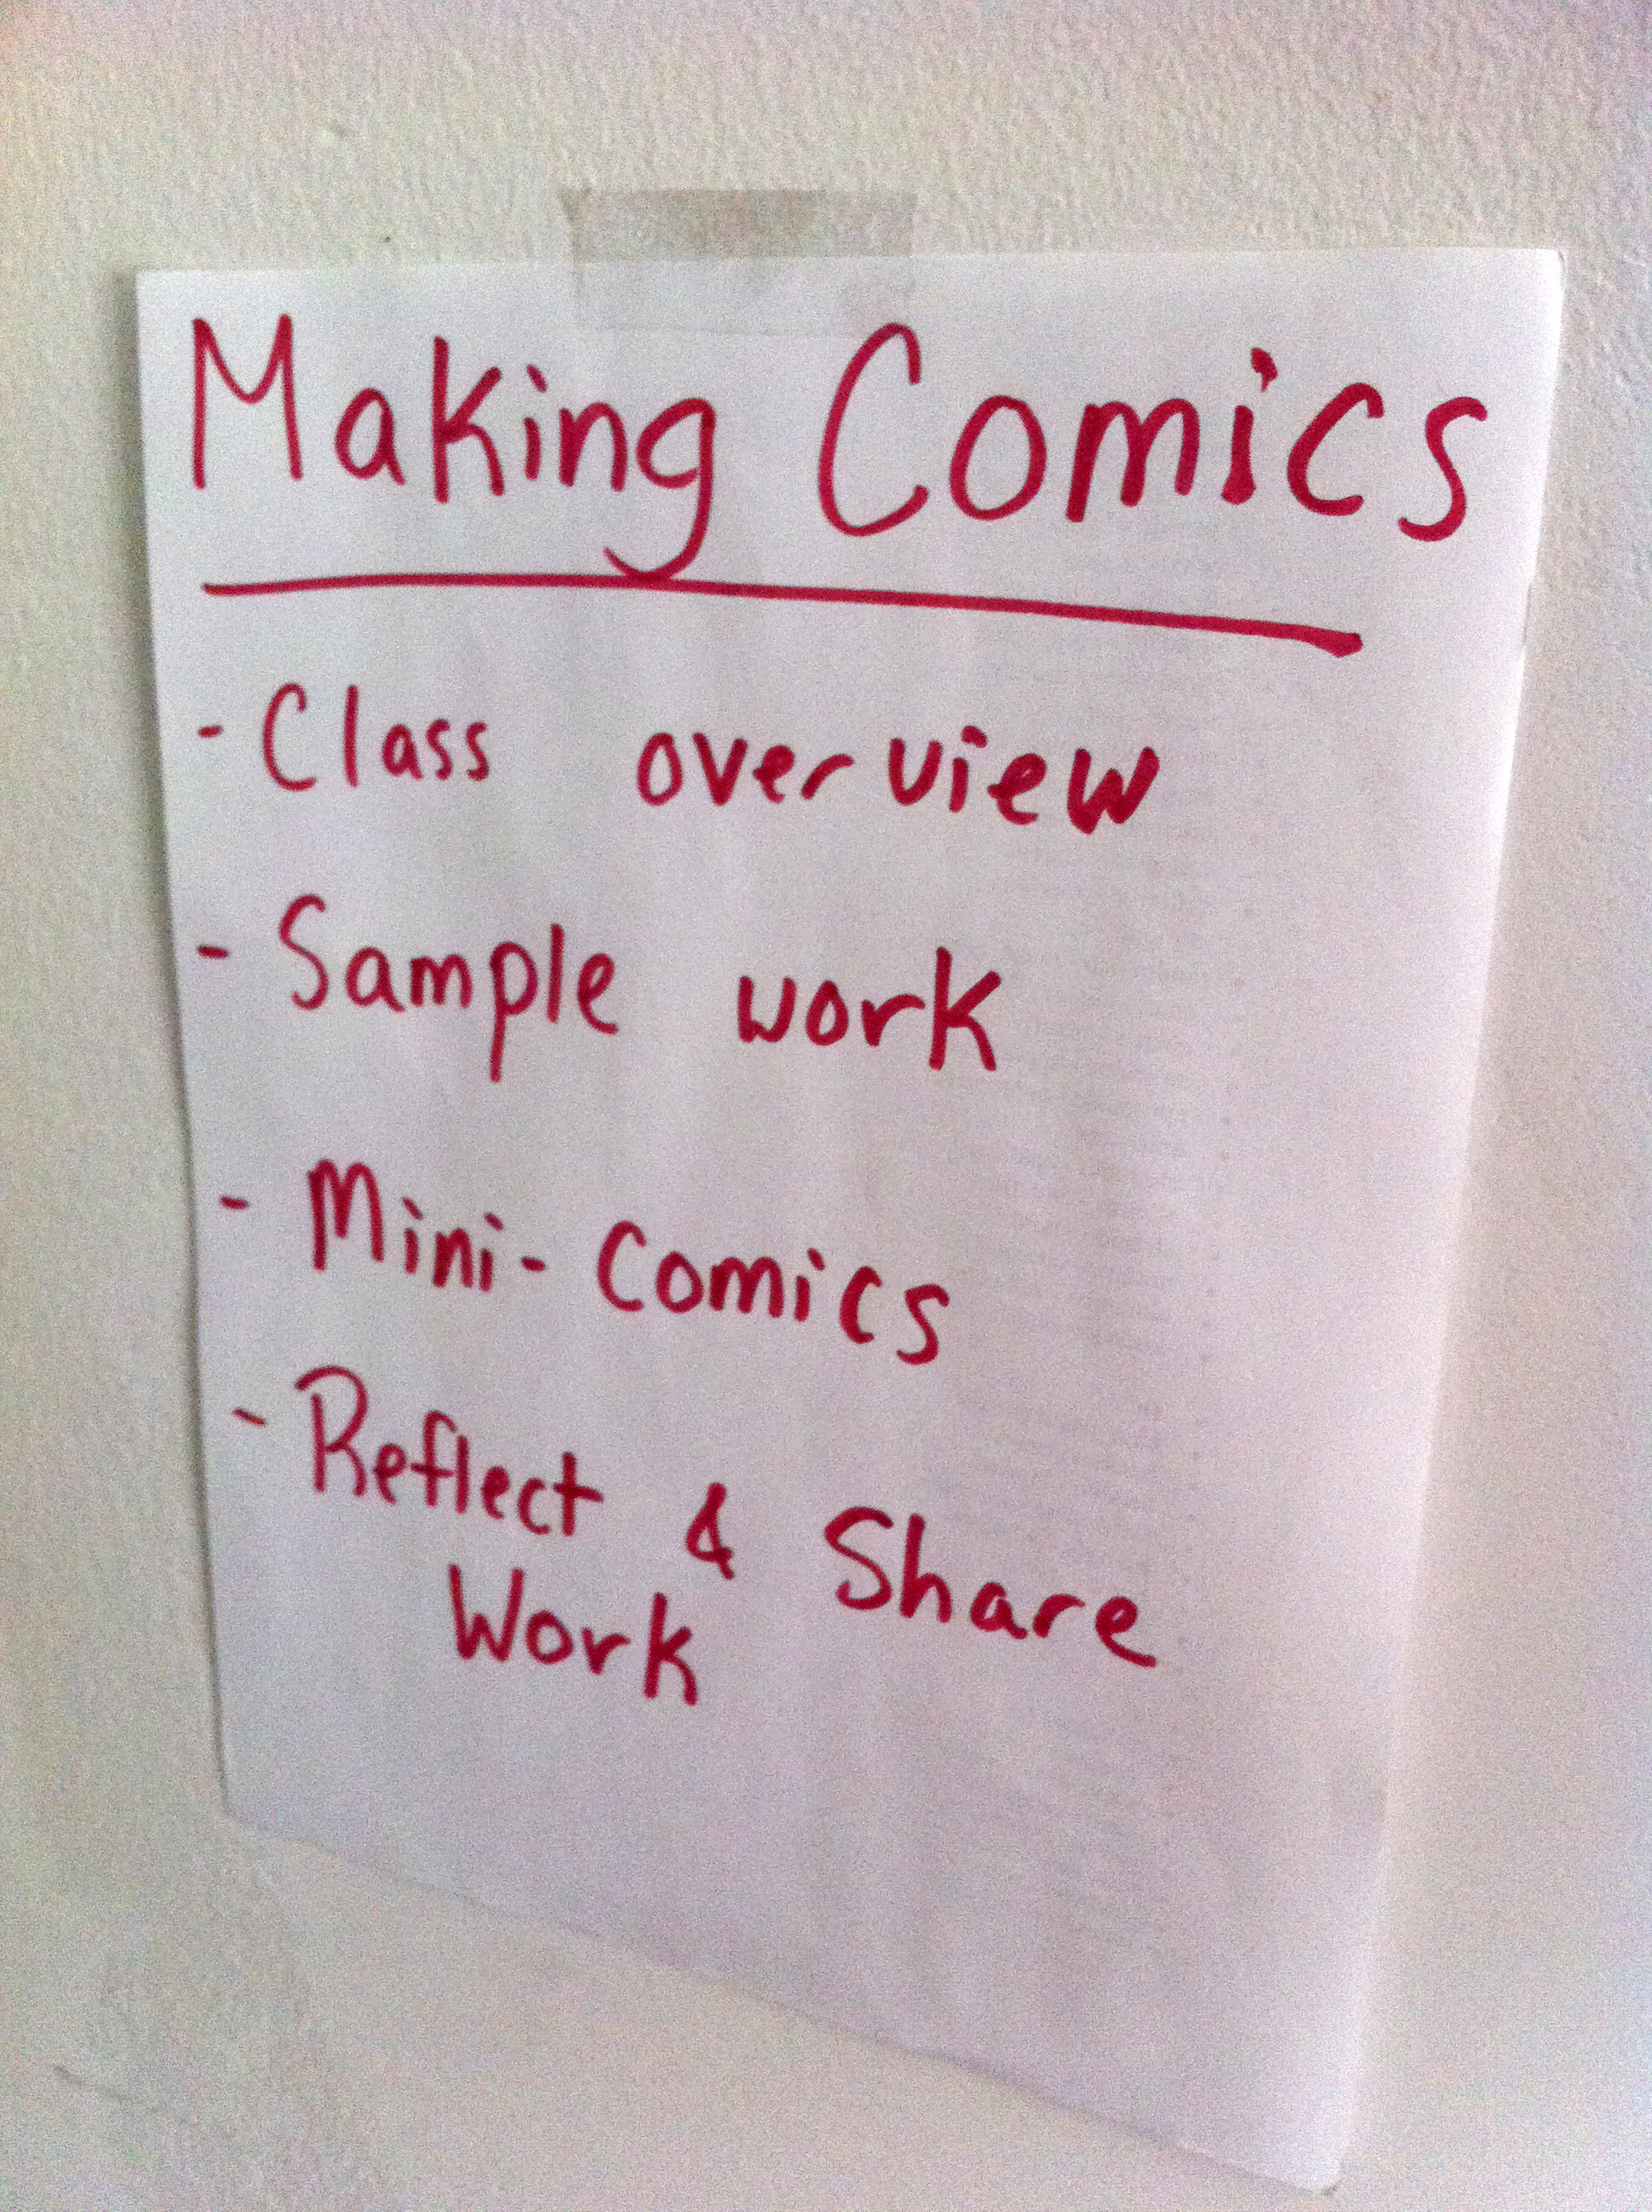 Making Comics
- Class overview
- Sample work
- Mini-Comics
- Reflect & Share
Work